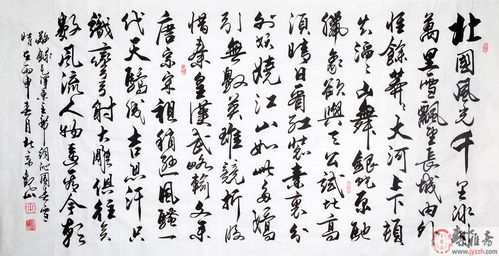 北國風光千里冰封
萬里雪飄望長城内外
惟餘莽莽大河上下頓
失滔滔山舞銀蛇原馳
臘象欲與天公試比高
須晴日看紅裝素裹分
外妖嬈江山如此多嬌
引無數英雄競折腰
惜秦皇漢武略輸文采
唐宗宋祖稍遜風騷一
代天驕成吉思汗只
識彎弓射大雕俱往矣
數風流人物還看今朝
敬錄毛澤東主席詞沁園春雪
時在丙申春月於京
www.jyzzh.com